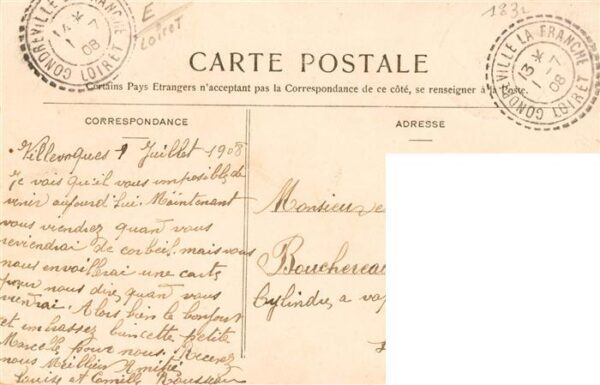 GONDREVILLE LA FRANCHE
LOIRET
1 -7
08
E
Loiret
183
GONDREVILLE LA FRANCHE
LOIRET
13 *
1 -7
08
CARTE POSTALE
Certains Pays Etrangers n'acceptant pas la Correspondance de ce côté, se renseigner à la Poste.
CORRESPONDANCE
Juillet 1908
Je vais qu'il vous imposible de
venir aujourd Lui. Maintenant
vous viendrez quand vous
reviendrai de corbeil. mais vous
nous envaillerai une carte
pour nous dire quand vous
viendrai. Alors bien le bonjour
et imbrassez bien cette petite
Marcelle pour nous. Recevez
nous Meillieur Amitié
Louise et Camille Rousseau
ADRESSE
Monsieur e
Bouchereau
Cylindre, a vap